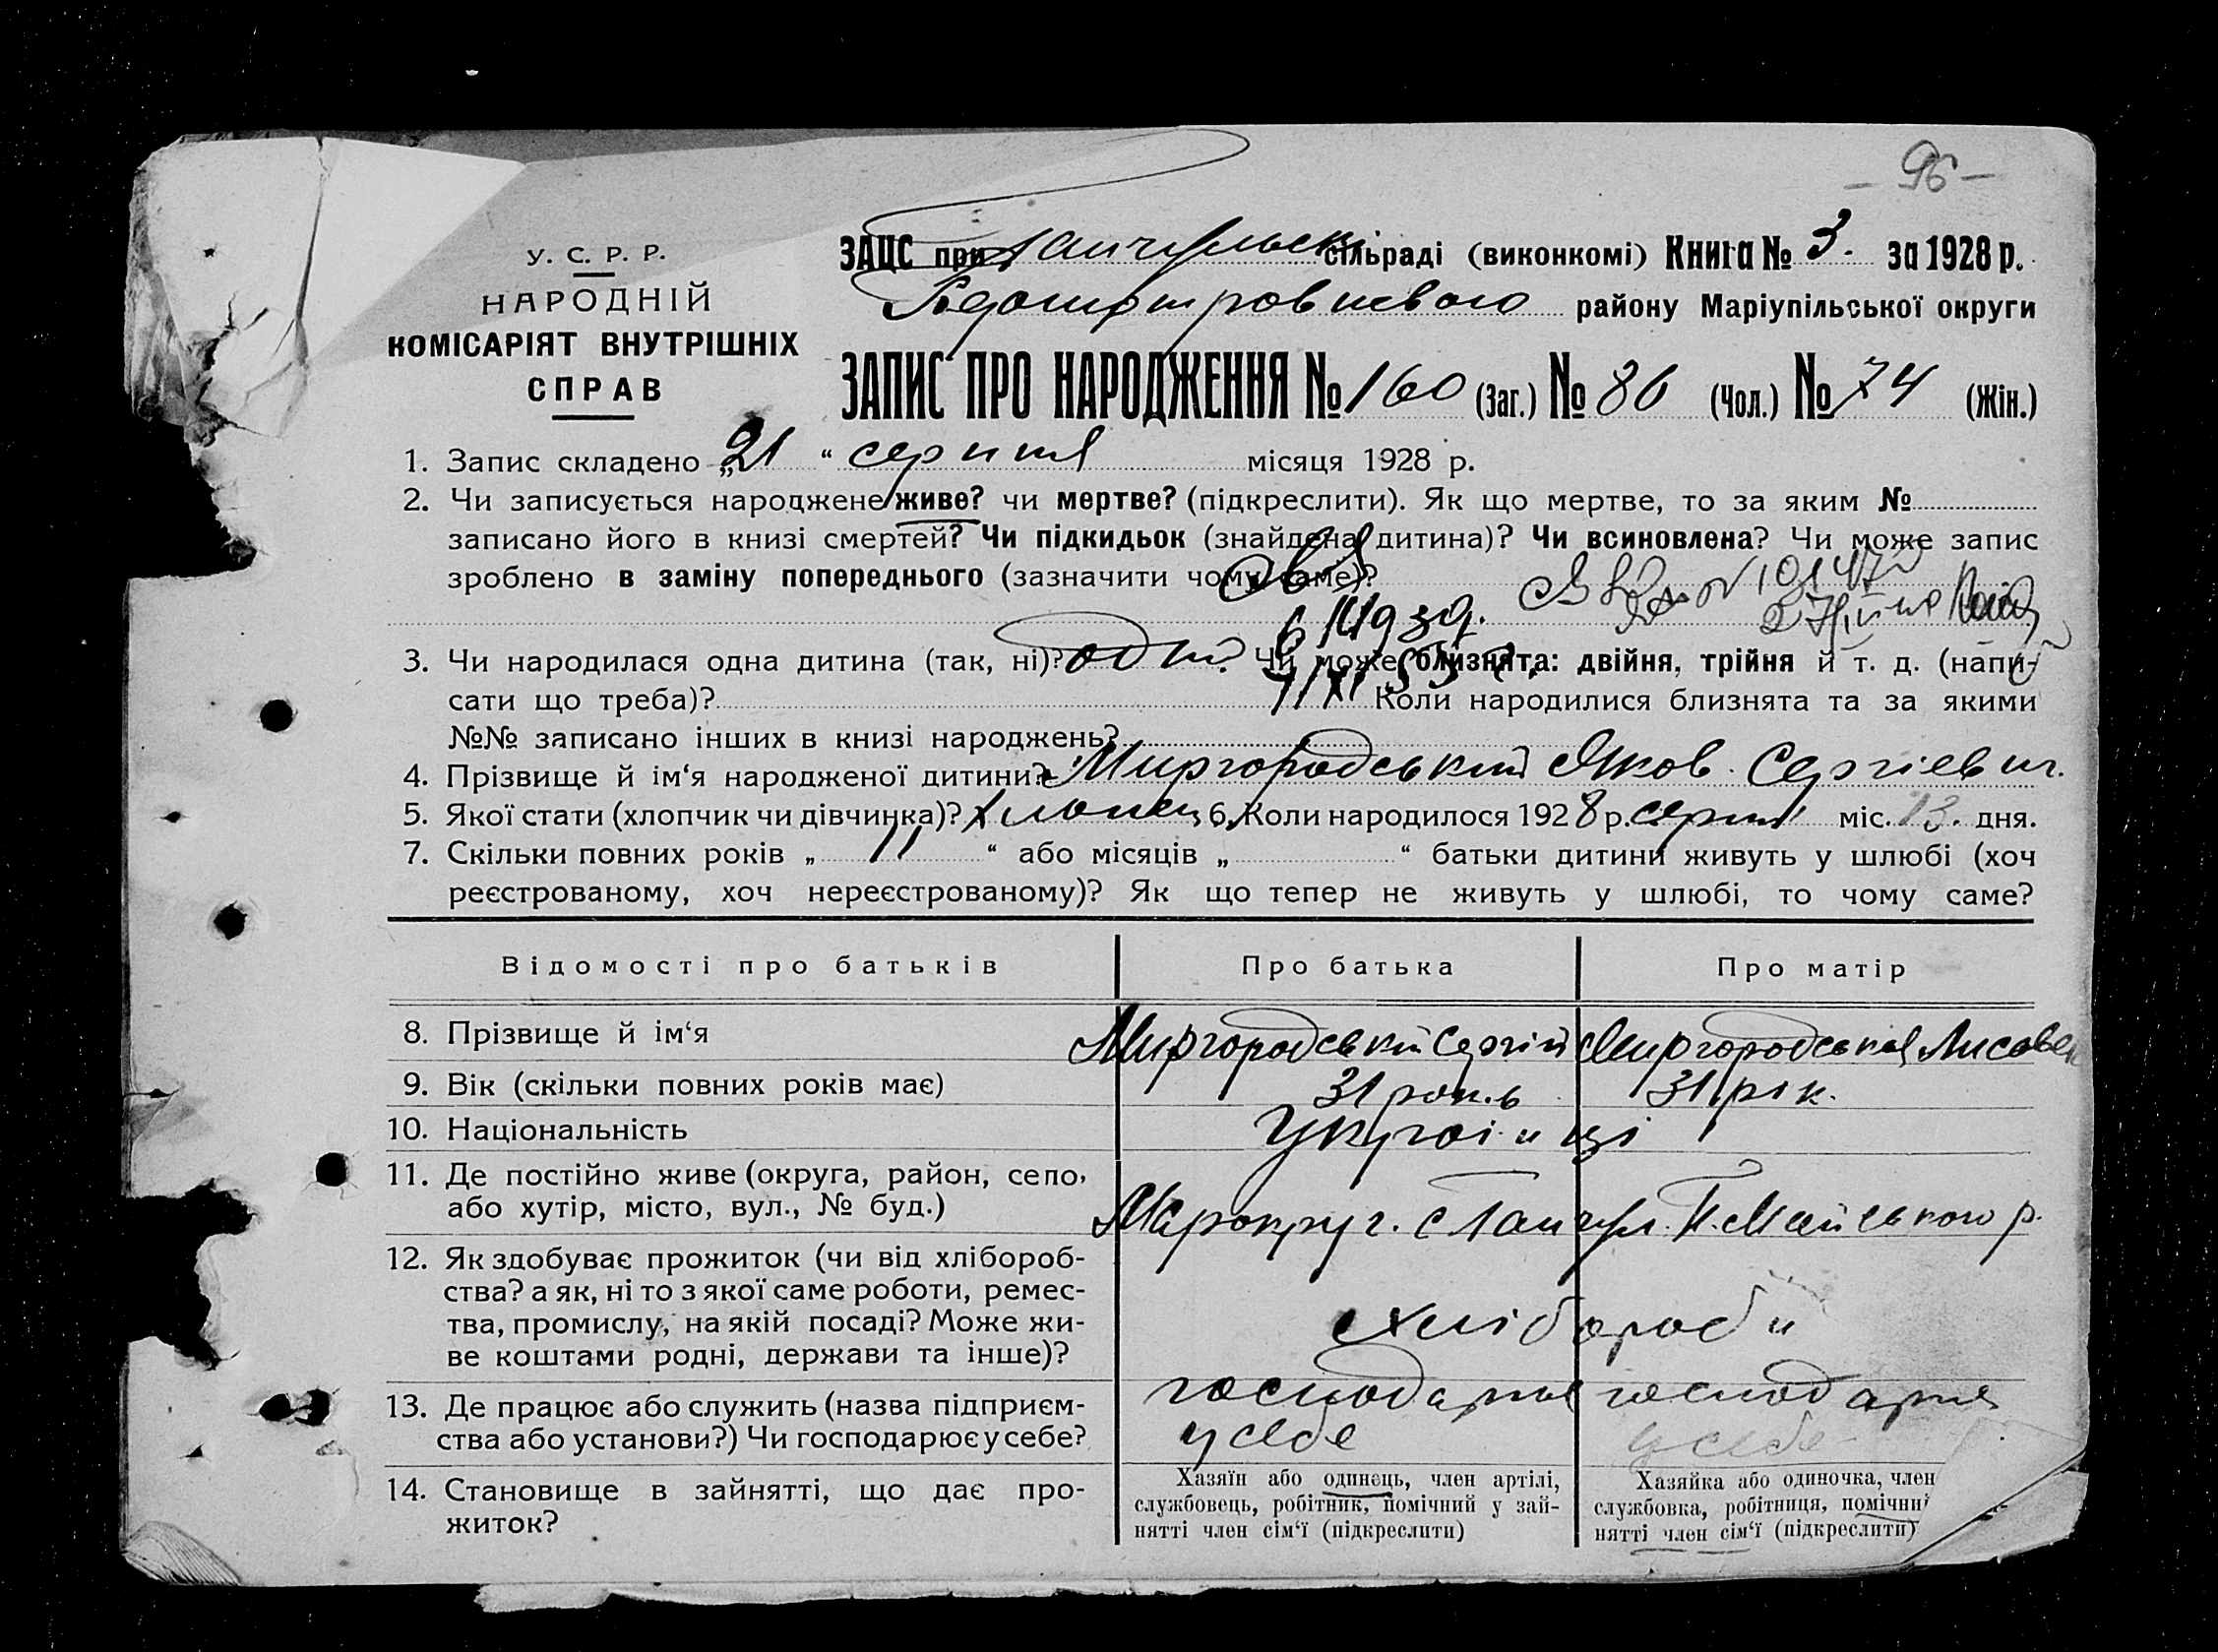 – 96 –
У. С. Р. Р.
НАРОДНІЙ
КОМІСАРІЯТ ВНУТРІШНІХ
СПРАВ
ЗАЦС при сільраді (виконкомі) Книга № 3. за 1928 р.
району Маріупільської округи
ЗАПИС ПРО НАРОДЖЕННЯ № 160 (Заг.) № 86 (Чол.) № 74 (Жін.)
1. Запис складено „21“ серпня місяця 1928 р.
2. Чи записується народжене живе? чи мертве? (підкреслити). Як що мертве, то за яким №
записано його в книзі смертей? Чи підкидьок (знайдена дитина)? Чи всиновлена? Чи може запис
зроблено в заміну попереднього (зазначити чому саме)?
3. Чи народилася одна дитина (так, ні)? одна Чи може близнята: двійня, трійня й т. д. (напи-
сати що треба)? Коли народилися близнята та за якими
№№ записано інших в книзі народжень?
4. Прізвище й ім‘я народженої дитини? Миргородський Яков Сергіевич.
5. Якої стати (хлопчик чи дівчинка)? хлопец 6. Коли народилося 1928 р. серпня міс. 13. дня.
7. Скільки повних років „ 11 “ або місяців „ “ батьки дитини живуть у шлюбі (хоч
реєстрованому, хоч нереєстрованому)? Як що тепер не живуть у шлюбі, то чому саме?
Відомості про батьків Про батька Про матір
8. Прізвище й ім‘я Миргородській Сергій Миргородська
9. Вік (скільки повних років має) 31 31 рік.
10. Національність Україиці
11. Де постійно живе (округа, район, село,
або хутір, місто, вул., № буд.)
12. Як здобуває прожиток (чи від хлібороб-
ства? а як, ні то з якої саме роботи, ремес-
тва, промислу, на якій посаді? Може жи-
ве коштами родні, держави та інше)?
хлібороби
13. Де працює або служить (назва підприєм-
ства або установи?) Чи господарює у себе?
господарює господарює
у себе у себе
14. Становище в зайнятті, що дає про-
житок?
Хазяїн або одинець, член артілі,
службовець, робітник, помічний у зай-
нятті член сім‘ї (підкреслити)
Хазяйка або одиночка, член
службовка, робітниця, помічни
нятті член сім‘ї (підкреслити)